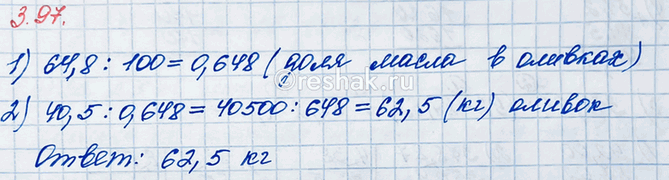 3.97.
1) 64,8 : 100 = 0,648 (доля масла в оливках)
©reshak.ru
2) 40,5 : 0,648 = 40500 : 648 = 62,5 (кг) оливок
Ответ: 62,5 кг